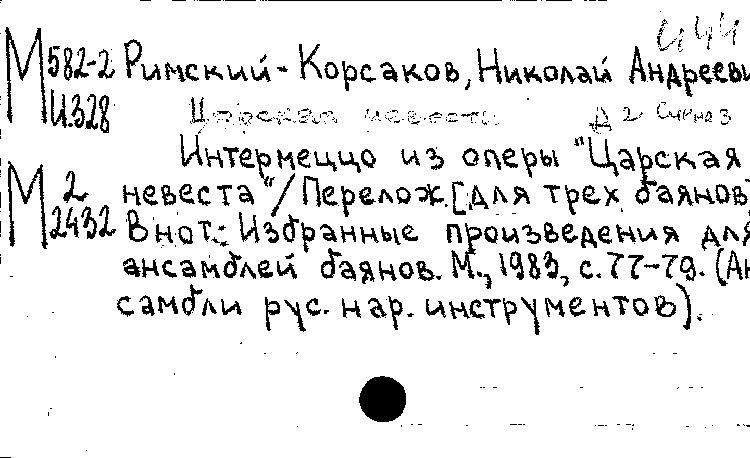 444
М 582-2 Римский-Корсаков, Николай Андрееви
И328
Царская невеста Д 2
Интермеццо из оперы "Царская
М 2 невеста"/Перелож. [для трех баянов]
2432 В нот.: Избранные произведения для
ансамблей баянов. М., 1983, с. 77-79. (Ан
самбли рус. нар. инструментов).